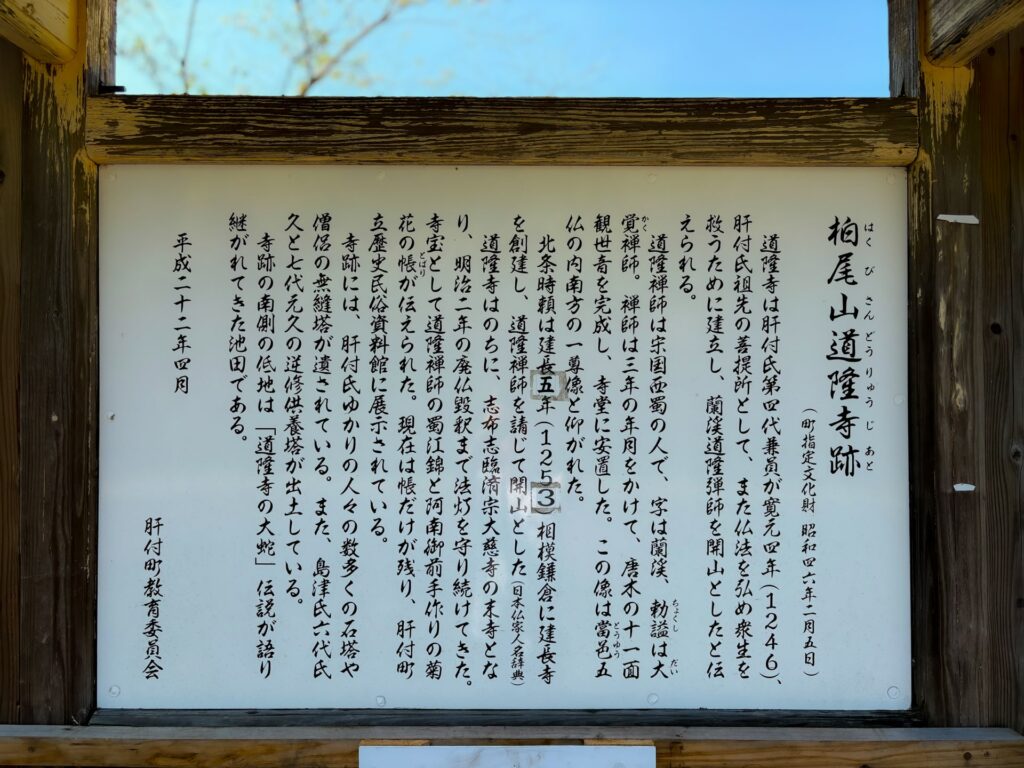 柏尾山道隆寺跡
はくびさんどうりゅうじあと
(町指定文化財 昭和四六年二月五日)
道隆寺は肝付氏第四代兼員が寛元四年(1246)、
肝付氏祖先の菩提所として、また仏法を弘め衆生を
救うために建立し、蘭渓道隆弾師を開山としたと伝
えられる。
道隆禅師は宋国西蜀の人で、字は蘭渓、勅謚は大
ちょくし だい
覚禅師。禅師は三年の年月をかけて、唐木の十一面
かく
観世音を完成し、寺堂に安置した。この像は當邑五
とうゆう
仏の内南方の一尊像と仰がれた。
北条時頼は建長五年(1253 相模鎌倉に建長寺
を創建し、道隆禅師を請じて開山とした(日本仏家人名辞典)
道隆寺はのちに、志布志臨済宗大慈寺の末寺とな
り、明治二年の廃仏毀釈まで法灯を守り続けてきた。
寺宝として道隆禅師の蜀江錦と阿南御前手作りの菊
花の帳が伝えられた。現在は帳だけが残り、肝付町
とばり
立歴史民俗資料館に展示されている。
寺跡には、肝付氏ゆかりの人々の数多くの石塔や
僧侶の無縫塔が遺されている。また、島津氏六代氏
久と七代元久の逆修供養塔が出土している。
寺跡の南側の低地は「道隆寺の大蛇」伝説が語り
継がれてきた池田である。
平成二十二年四月
肝付町教育委員会